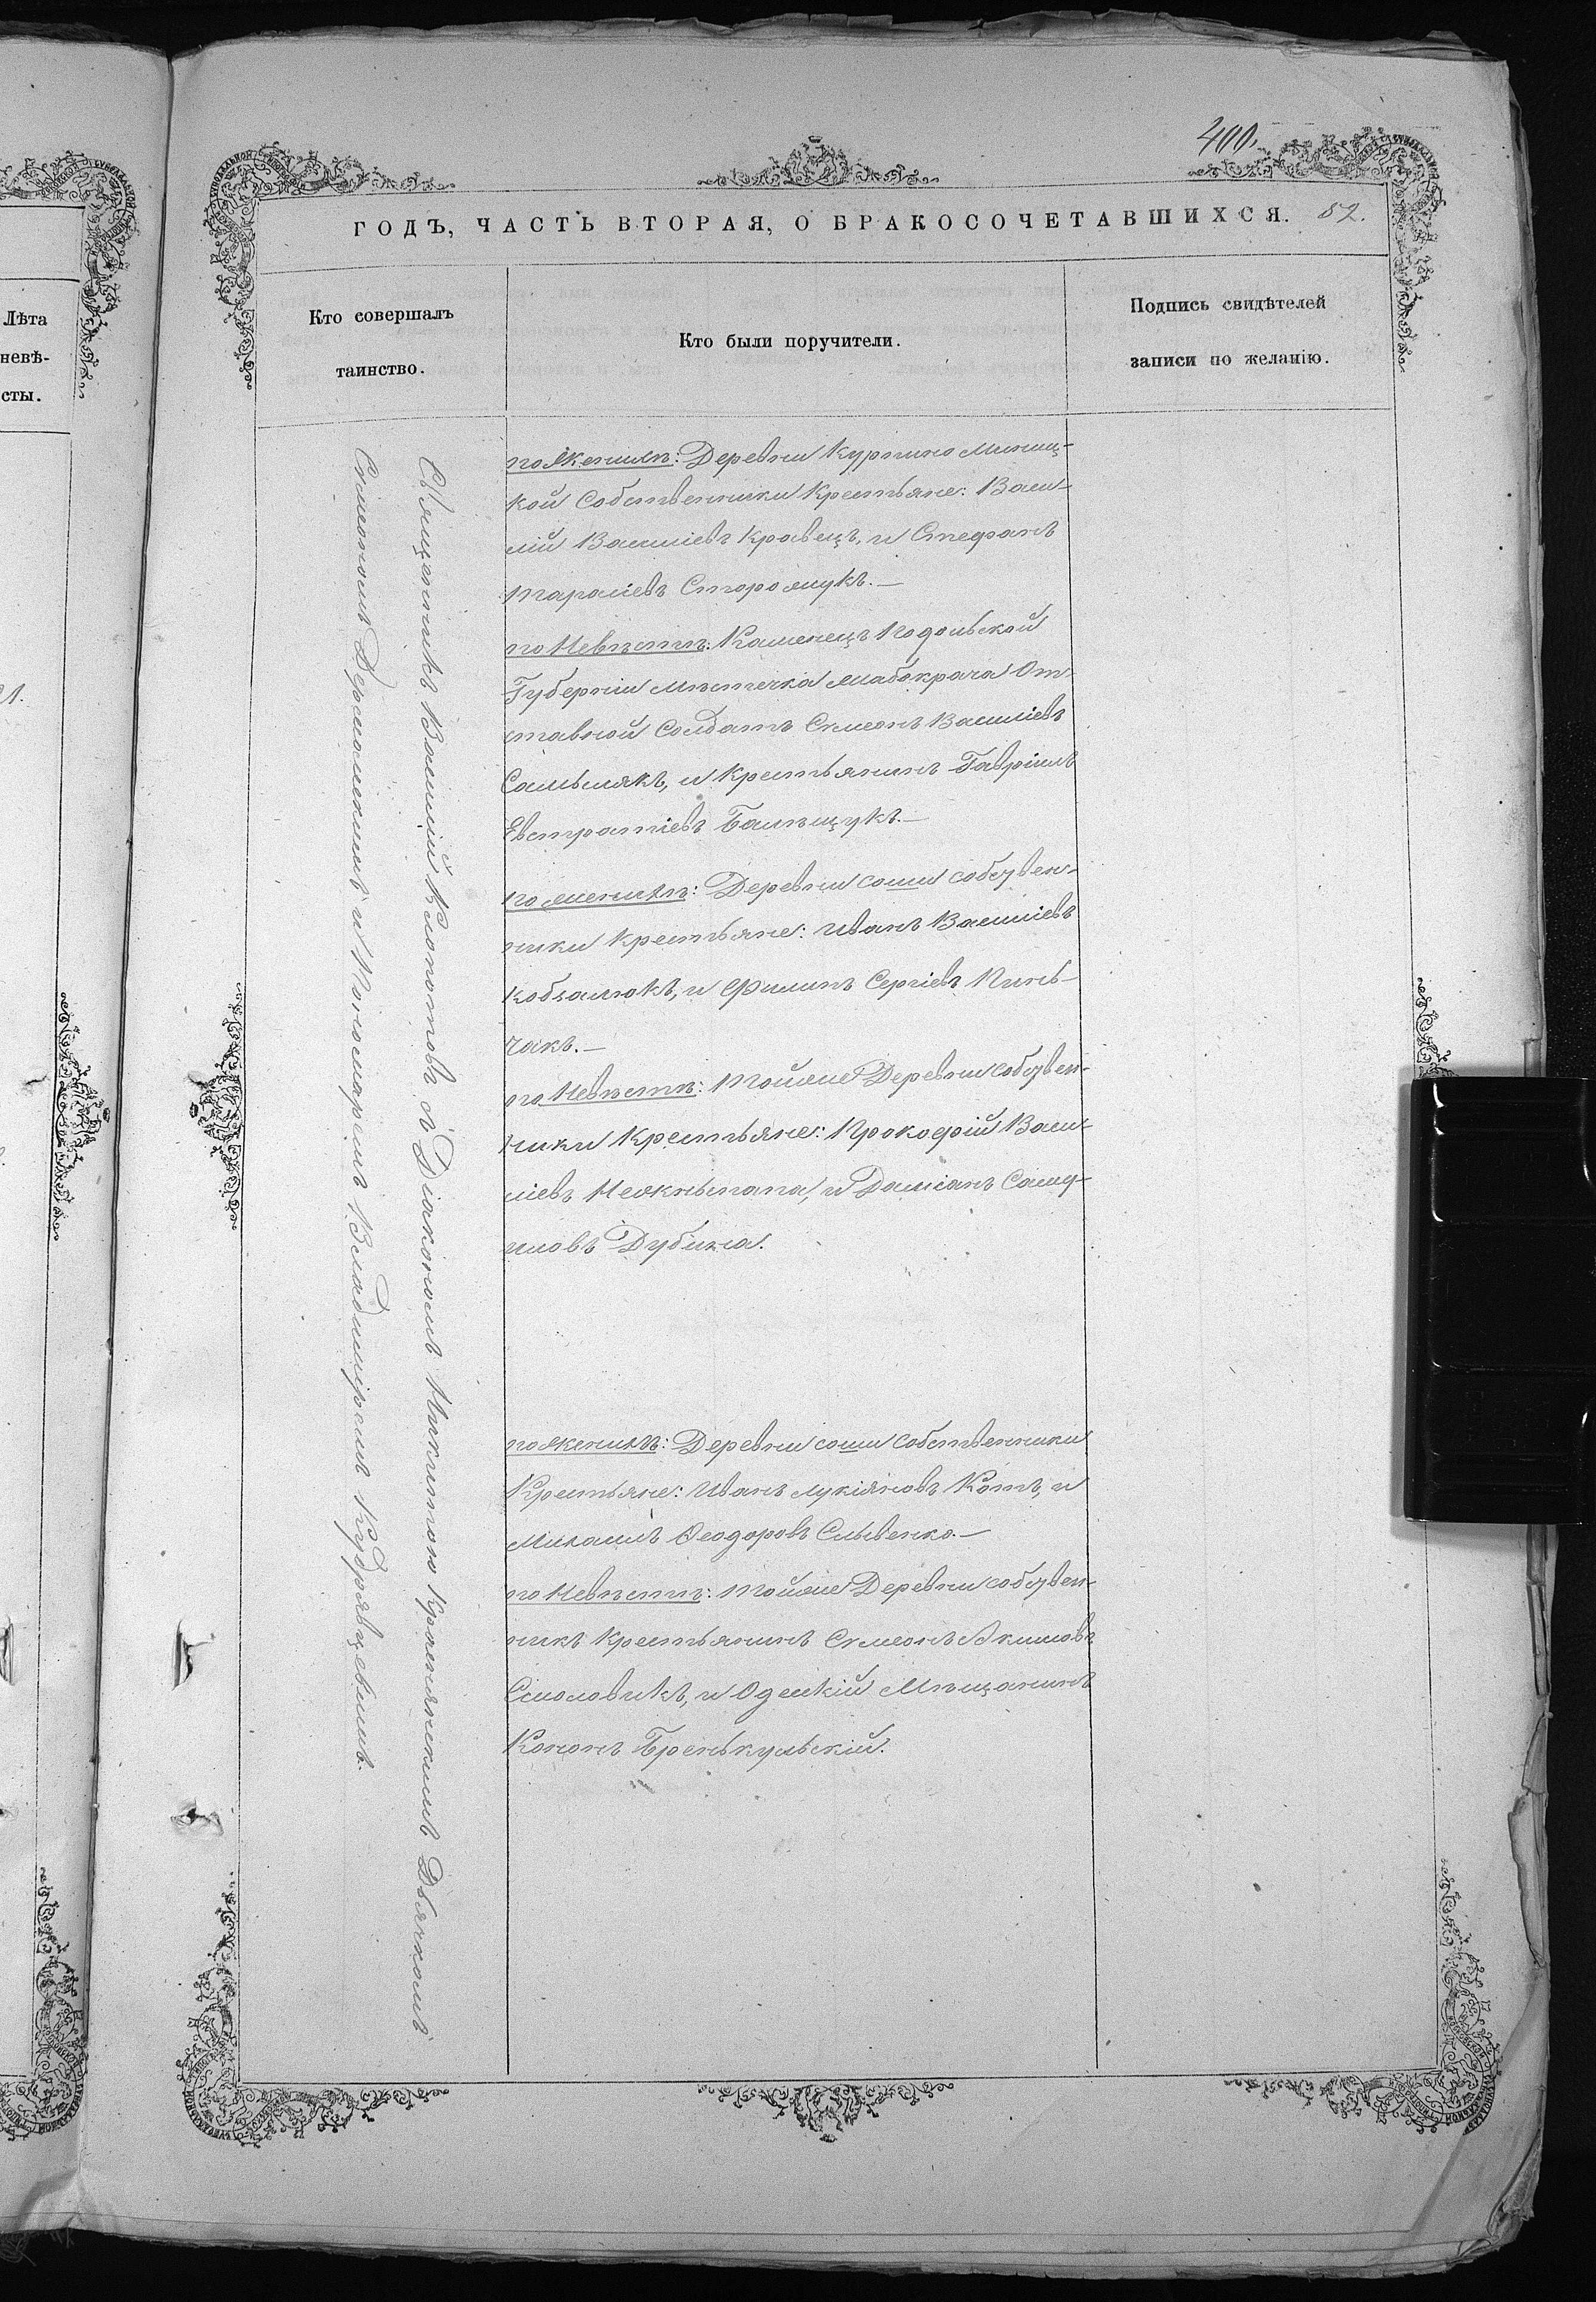 400.
ГОДЪ, ЧАСТЬ ВТОРАЯ, О БРАКОСОЧЕТАВШИХСЯ. 82.
Лѣта
невѣ-
сты.
Кто совершалъ
таинство.
Кто были поручители.
Подпись свидѣтелей
записи по желанію.
Священникъ Василій Клопотовъ съ Діакономъ Никитою Крамянскимъ Дьячкомъ
Симеономъ Держановскимъ и Пономаремъ Владимиромъ Кудрявцевымъ.
по Женихѣ: Деревни Курпино
кой Собственники Крестьяне: Васи-
лій Василіевъ Кравецъ, и Стефанъ
Тарасіевъ Сторожукъ.—
по Невѣстѣ: Каменецъ Подольской
Губерніи Мѣстечка Мабокрача От-
ставной Солдатъ Симеонъ Василіевъ
и Крестьянинъ Гавріилъ
Евстратіевъ
по женихѣ: Деревни сони собствен-
ники Крестьяне: Иванъ Василіевъ
Кобзалюкъ, и Филипъ Сергіевъ Пинь-
чакъ.—
по Невѣстѣ: Тойже Деревни собствен-
ники Крестьяне: Прокофій Васи-
ліевъ и Даміанъ Саму-
иловъ Дубина.
по женихѣ: Деревни сони Собственники
Крестьяне: Иванъ Лукіяновъ Котъ, и
Михаилъ Ѳеодоровъ
по Невѣстѣ: Тойже Деревни собствен-
никъ Крестьянинъ Симеонъ Акимовъ
Смоловикъ, и Одескій Мѣщанинъ
Кононъ Бренькульскій.